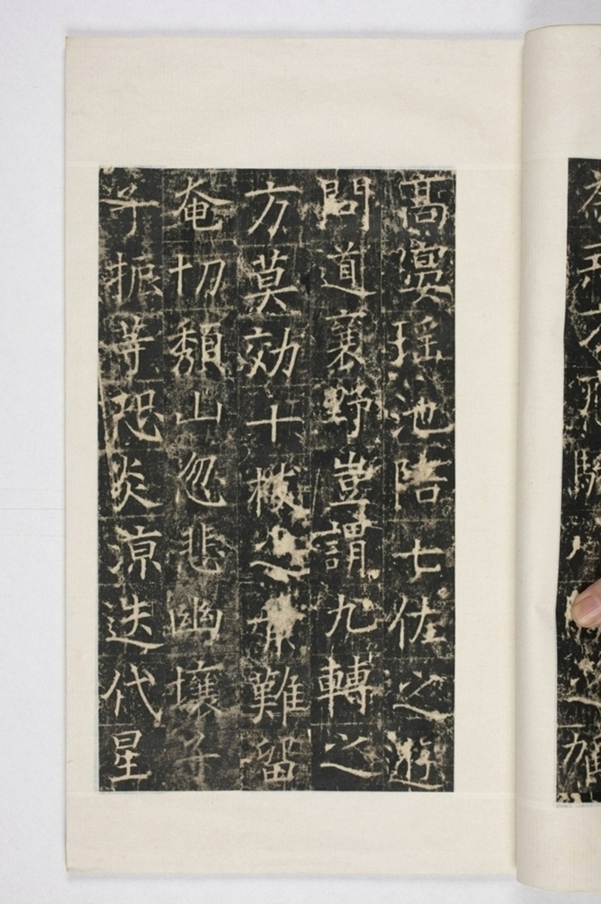 高讌瑶池陪七佐之遊
問道襄野豈謂九轉之
方莫効十 之 難留
奄切頹山忽悲幽壤子
子振等恐炎涼迭代星